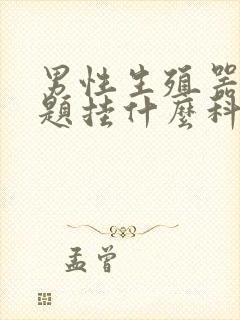 男性生殖器
題挂什麼科
孟曾